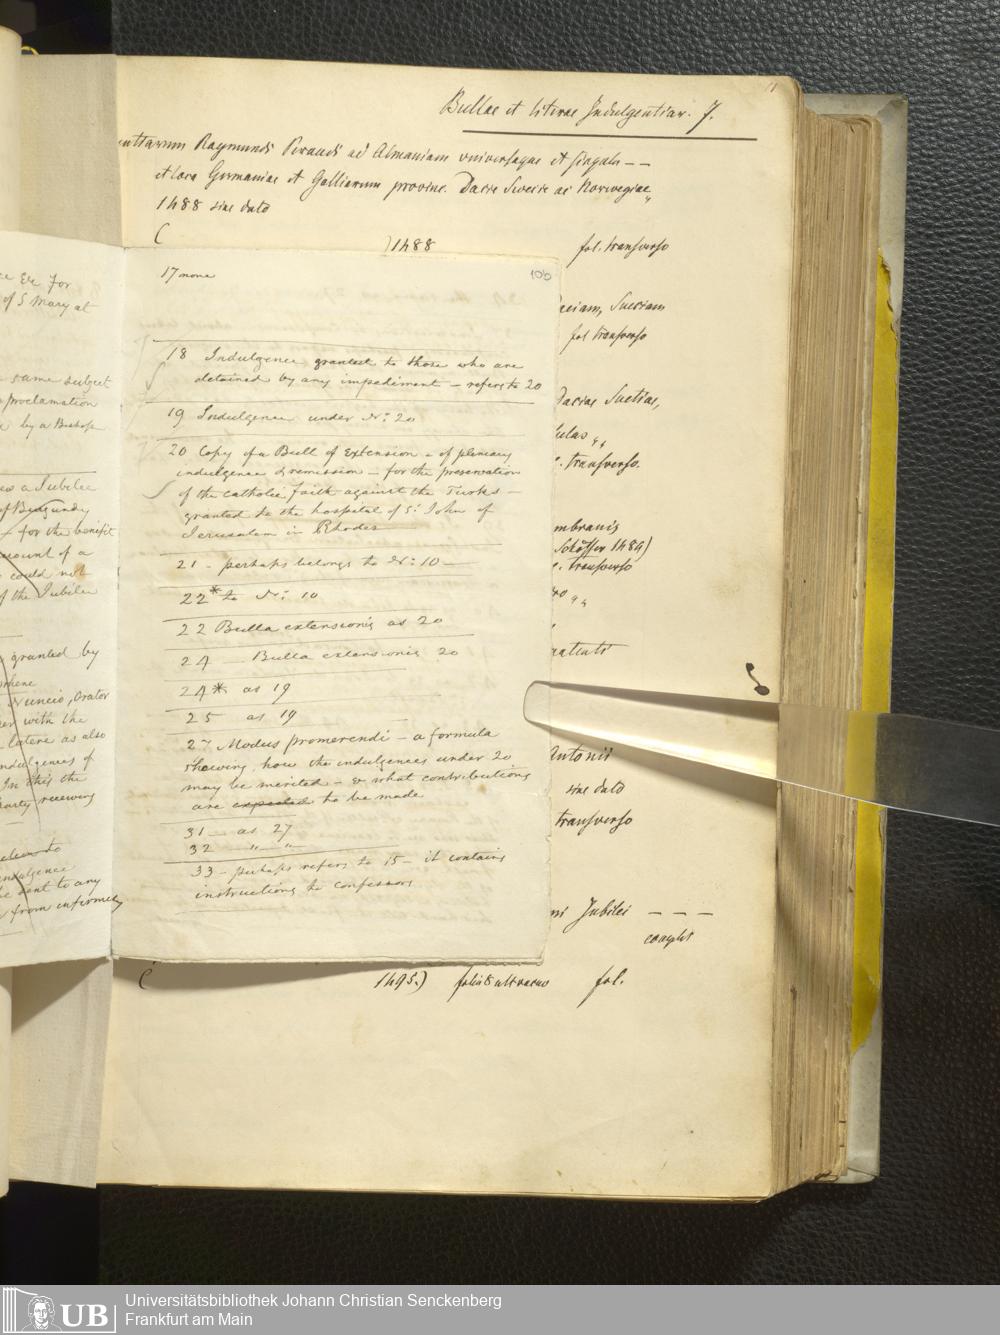 11
Bullae et literae Indulgentiar. 7.
Raymundi Peraudi ad Almaniam universaque et singula – –
et loca Germaniae et Galliarum provinc. Dacie Swecie ac Norwegiae
1488 sine dato
( )1488 fol. transverso
Daciam, Sueciam
fol. transverso
Daciae Suetiae,
transverso.
mbranis
Schöffer 1489)
transverso
Antonii
sine dato
transverso
Jubilei – – –
( 1495.) fol.
100
17 none
18 Indulgence granted to those who are
detained by any impediment – refers to 20
19 Indulgence under No: 20
20 Copy of a Bull of Extension – of plenary
indulgence & remission – for the preservation
of the catholic faith against the Turks –
granted to the hospital of St: John of
Jerusalem in Rhodes
21 – perhaps belongs to No: 10 –
22* to No: 10
22 Bulla extensionis as 20
24 – Bulla extensionis 20
24* as 19
25 as 19
27 Modus promerendi – a formula
shewing how the indulgences under 20
may be merited – & what contributions
are expected to be made
31 – as 27
32 " – "
33 – perhaps refers to 15 – it contains
instructions to confessors
&c for
of S Mary at
same subject
proclamation
by a Bishop
a Jubilee
of Burgundy
for the benefit
amount of a
could not
of the Jubilee
granted by
Nuncio, Orator
with the
latere as also
indulgences of
In this the
party receiving
indulgence
sent to any
from infirmity
UB
Universitätsbibliothek Johann Christian Senckenberg
Frankfurt am Main